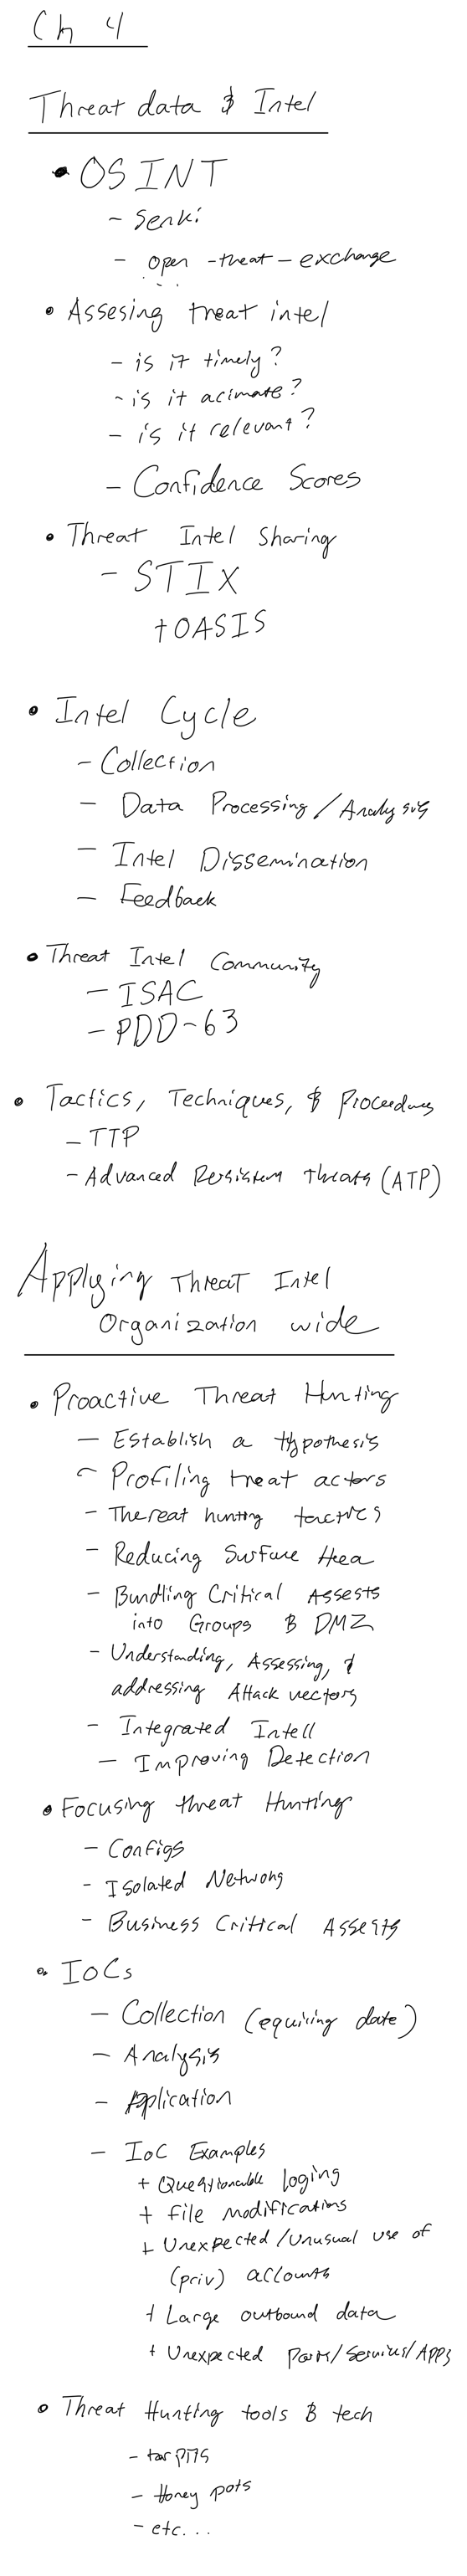 Ch 4
Threat data & Intel
• OSINT
- Senki
- open-theat-exchange
• Assesing treat intel
- is it timely?
- is it acimate?
- is it relevant?
- Confidence Scores
• Threat Intel Sharing
- STIX
+ OASIS
• Intel Cycle
- Collection
- Data Processing / Analysis
- Intel Dissemination
- Feedback
• Threat Intel Community
- ISAC
- PDD-63
• Tactics, Techniques, & Procedures
- TTP
- Advanced Persistem Threats (ATP)
Applying Threat Intel
Organization wide
• Proactive Threat Hunting
- Establish a Hypothesis
- Profiling treat actors
- Thereat hunting tactics
- Reducing Surface Area
- Bundling Critical Assests
into Groups & DMZ
- Understanding, Assessing, &
addressing Attack vectors
- Integrated Intell
- Improving Detection
• Focusing threat Hunting
- Configs
- Isolated Networks
- Business Critical Assests
• IoCs
- Collection (equiring date)
- Analysis
- Application
- IoC Examples
+ Questionable loging
+ file modifications
+ Unexpected/Unusual use of
(priv) accounts
+ Large outbound data
+ Unexpected Ports/Services/Apps
• Threat Hunting tools & tech
- tar pits
- Honey pots
- etc...